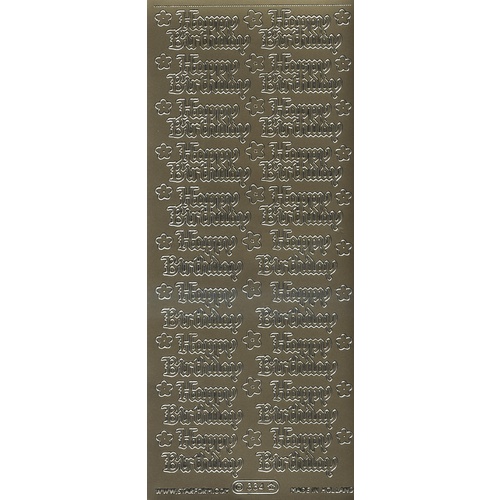 Happy Happy
Birthday Birthday
Happy Happy
Birthday Birthday
Happy Happy
Birthday Birthday
Happy Happy
Birthday Birthday
Happy Happy
Birthday Birthday
Happy Happy
Birthday Birthday
Happy Happy
Birthday Birthday
Happy Happy
Birthday Birthday
Happy Happy
Birthday Birthday
Happy Happy
Birthday Birthday
334 MADE IN HOLLAND